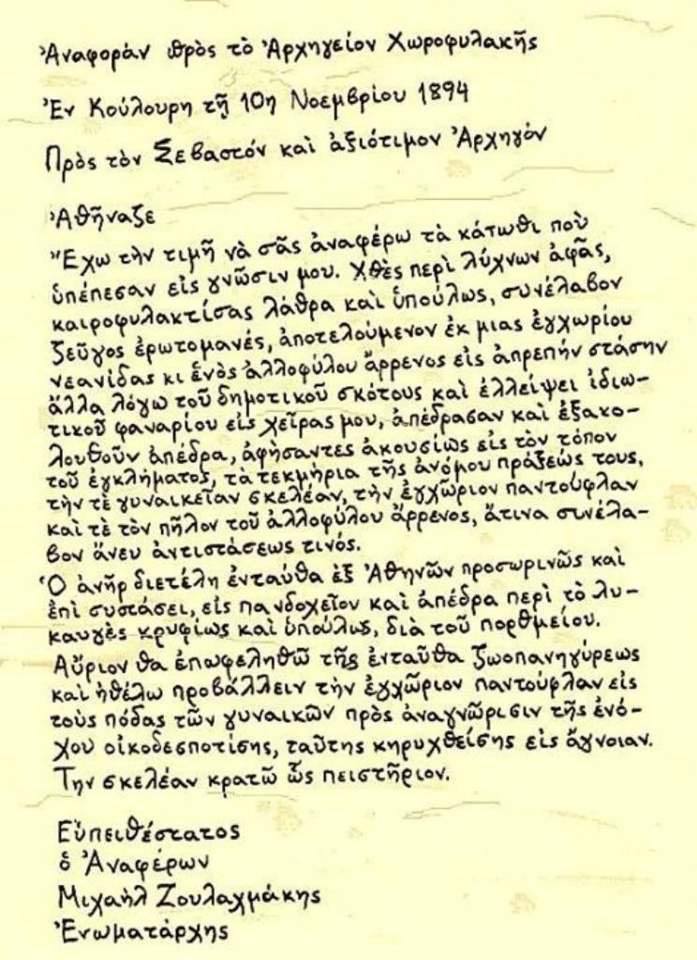 Ἀναφορὰν πρὸς τὸ Ἀρχηγεῖον Χωροφυλακῆς
Ἐν Κούλουρη τῇ 10η Νοεμβρίου 1894
Πρὸς τὸν Σεβαστόν καὶ ἀξιότιμον Ἀρχηγόν
Ἀθῆναζε
Ἔχω τὴν τιμῆ νὰ σᾶς ἀναφέρω τὰ κάτωθι ποὺ
ὑπέπεσαν εἰς γνῶσιν μου. Χθὲς περὶ λύχνων ἀφᾶς,
καιροφυλακτίσας λάθρα καὶ ὑπούλως, συνέλαβον
ζεῦγος ἐρωτομανές, ἀποτελούμενον ἐκ μιας ἐγχωρίου
νεανίδας κι ἑνὸς ἀλλοφύλου ἄρρενος εἰς ἀπρεπήν στάσην
ἄλλα λόγω τοῦ δημοτικοῦ σκότους καὶ ἐλλείψει ἰδιω-
τικοῦ φαναρίου εἰς χεῖρας μου, ἀπέδρασαν καὶ ἐξακο-
λουθοῦν ἀπέδρα, ἀφήσαντες ἀκουσίως εἰς τὸν τόπον
τοῦ ἐγκλήματος, τὰ τεκμήρια τῆς ἀνόμου πράξεώς τους,
τὴν τὲ γυναικεῖαν σκελέαν, τὴν ἐγχῶριον παντούφλαν
καὶ τὲ τὸν πῆλον τοῦ ἀλλοφύλου ἄρρενος, ἄτινα συνέλα-
βον ἄνευ ἀντιστάσεως τινός.
Ὁ ἀνὴρ διετέλη ἐνταύθα ἐξ Ἀθηνῶν προσωρινῶς καὶ
ἐπὶ συστάσει, εἰς πανδοχεῖον καὶ ἀπέδρα περὶ τὸ λυ-
καυγὲς κρυφίως καὶ ὑπούλως, διὰ τοῦ πορθμείου.
Αὔριον θα ἐπωφεληθῶ τῆς ἐνταῦθα ζωοπανηγύρεως
καὶ ἠθέλω προβάλλειν τὴν ἐγχῶριον παντούφλαν εἰς
τοὺς πόδας τῶν γυναικῶν πρὸς ἀναγνώρισιν τῆς ἐνό-
χου οἰκοδεσποτίσης, ταῦτης κηρυχθείσης εἰς ἄγνοιαν.
Την σκελέαν κρατῶ ὣς πειστῆριον.
Εὐπειθέστατος
ὁ Ἀναφέρων
Μιχαὴλ Ζουλαχμάκης
Ἐνωματάρχης